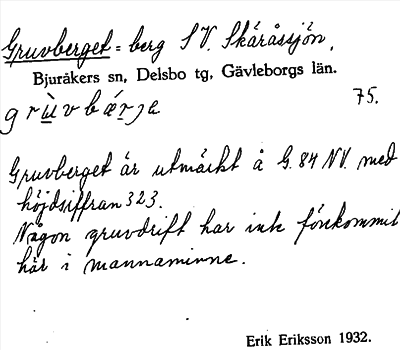 Gruvberget = berg SV. Skåråssjön,
Bjuråkers sn, Delsbo tg, Gävleborgs län.
grùvbærja 75.
Gruvberget är utmärkt å G. 84 NV. med
höjdsiffran 323.
Någon gruvdrift har inte förekommit
här i mannaminne.
Erik Eriksson 1932.